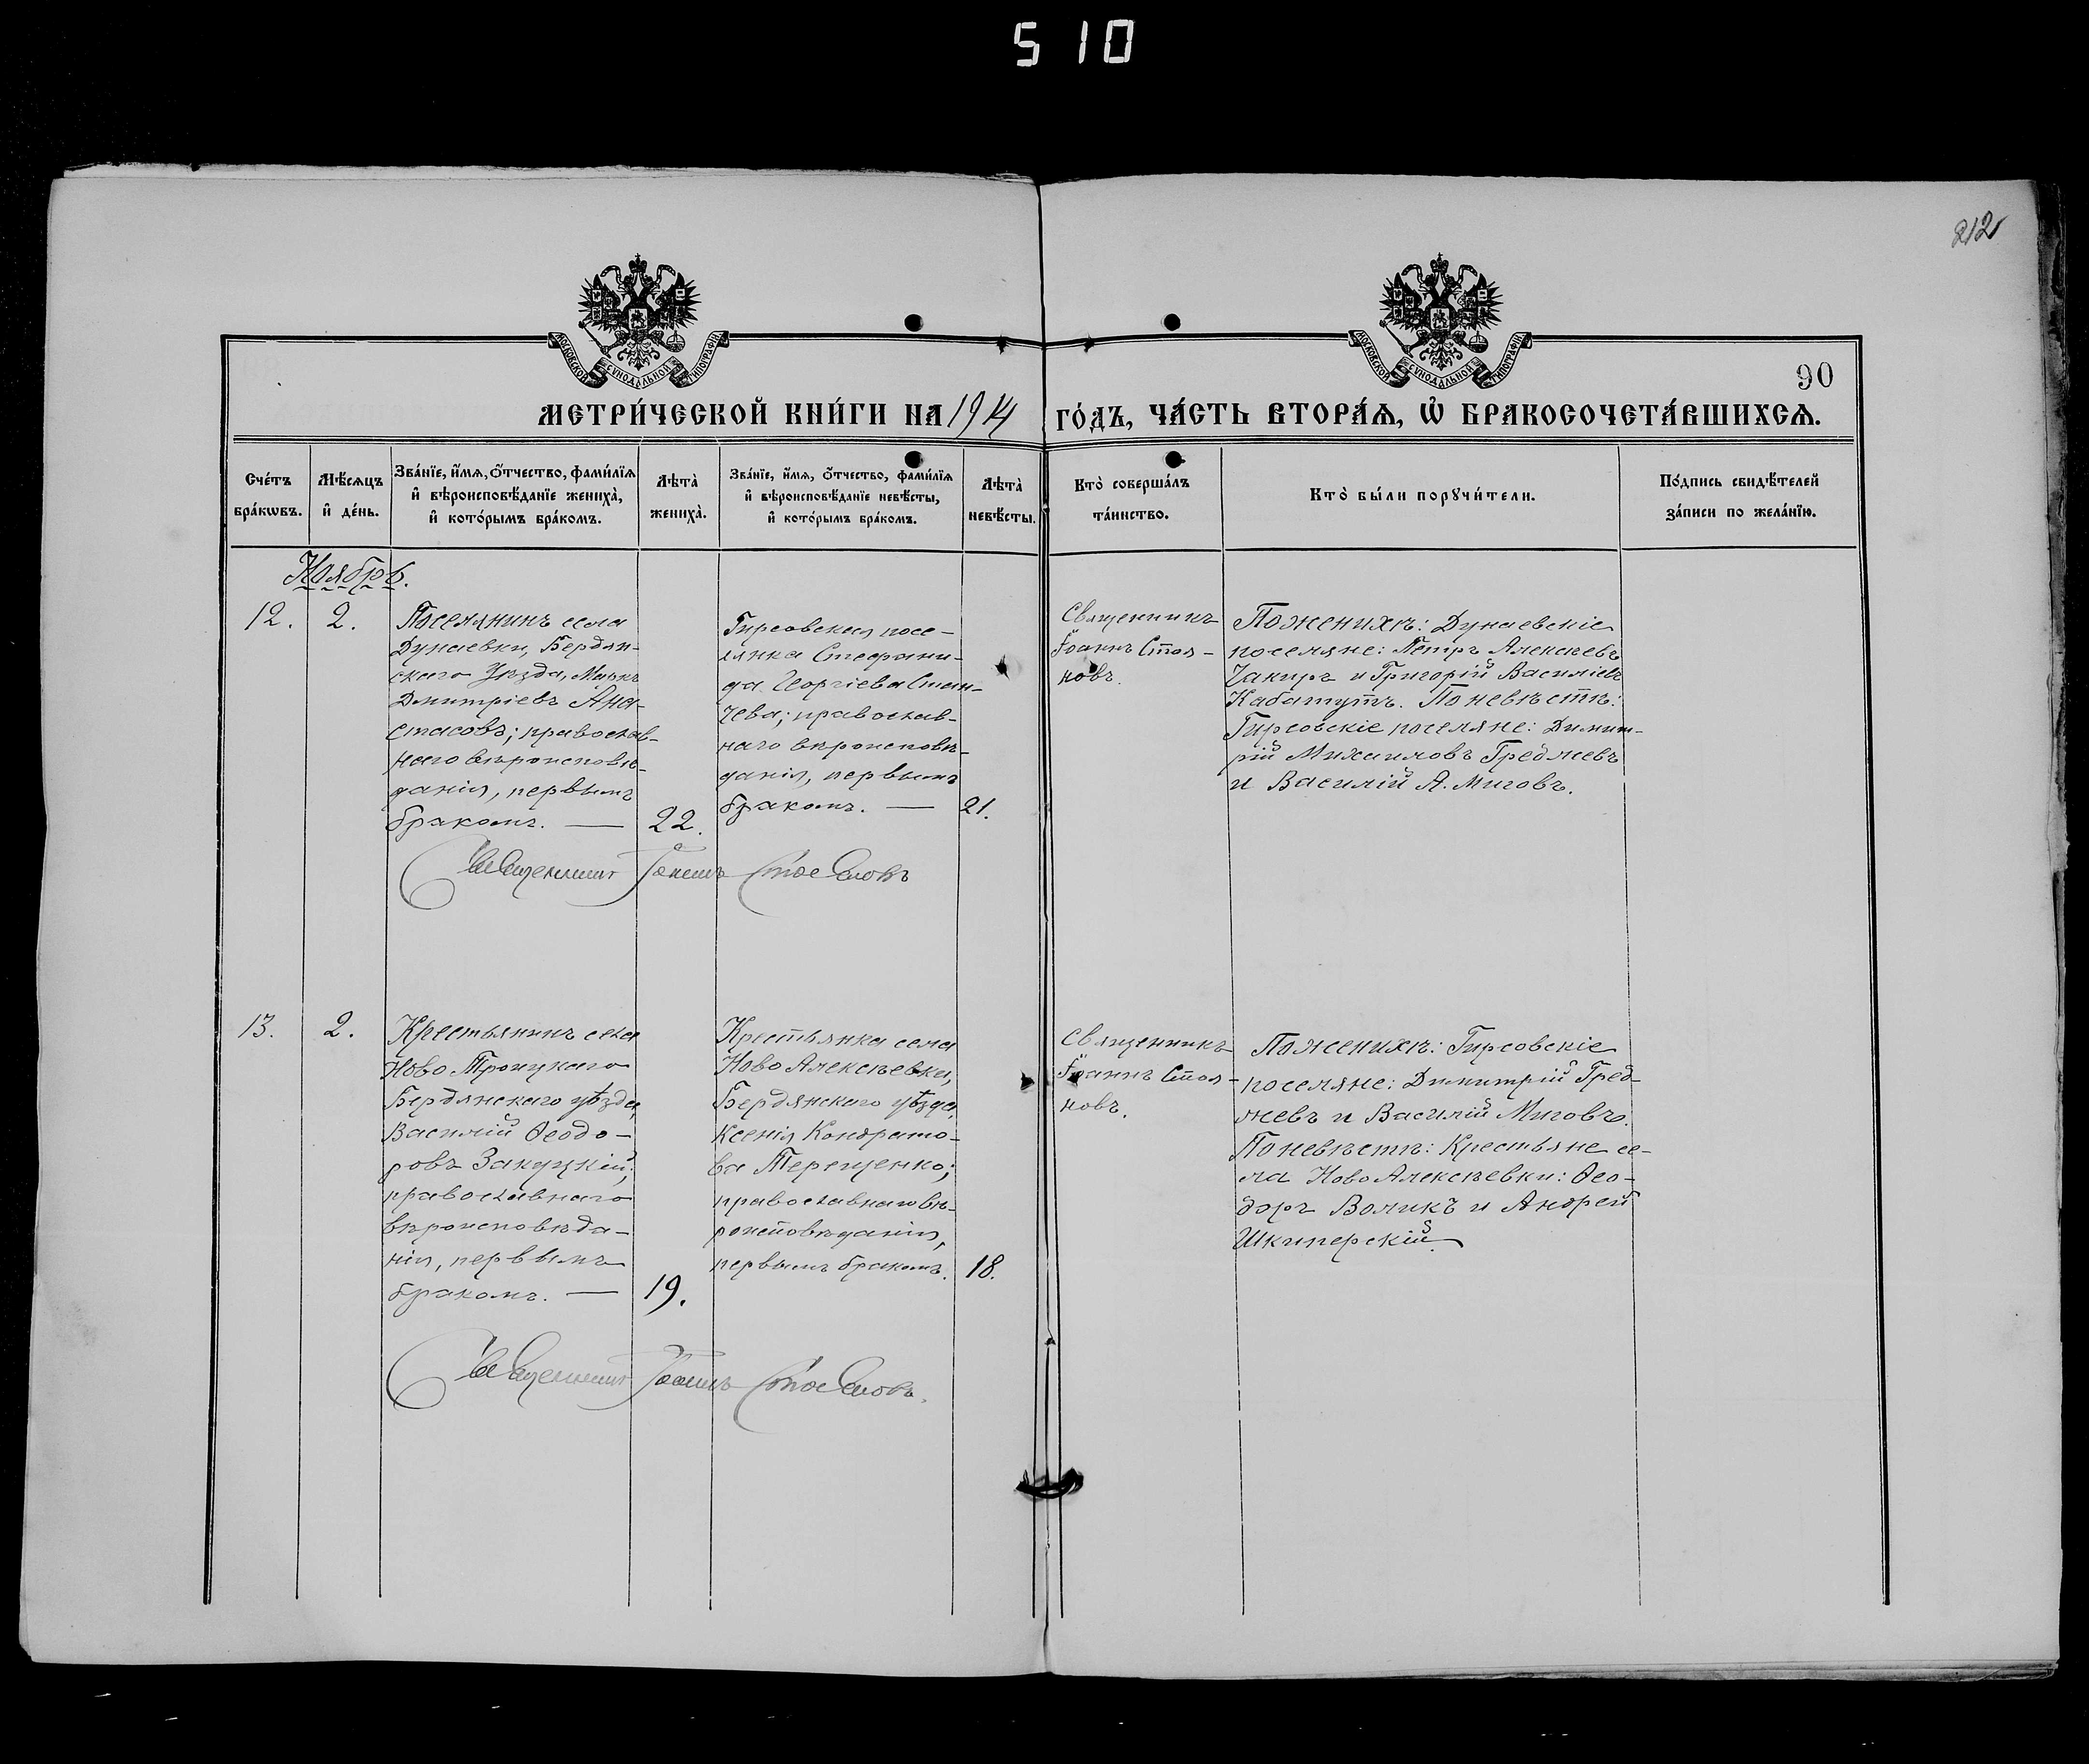 510
212
МОСКОВСКОЙ СѴНОДАЛЬНОЙ ТИПОГРАФІИ
МОСКОВСКОЙ СѴНОДАЛЬНОЙ ТИПОГРАФІИ
90
МЕТРИ́ЧЕСКОЙ КНИ́ГИ НА 1914 ГО́ДЪ, ЧА́СТЬ ВТОРА́Ѧ, Ѽ БРАКОСОЧЕТА́ВШИХСѦ.
Сче́тъ
бра́кѡвъ.
Мѣ́сѧцъ
и҆ де́нь.
Зва́нїе, и҆́мѧ, ѻ҆́тчество, фами́лїѧ
и҆ вѣроисповѣ́данїе жениха̀,
и҆ кото́рымъ бра́комъ.
Лѣта̀
жениха̀.
Зва́нїе, и҆́мѧ, ѻ҆́тчество, фами́лїѧ
и҆ вѣроисповѣ́данїе невѣ́сты,
и҆ кото́рымъ бра́комъ.
Лѣта̀
невѣ́сты.
Кто̀ соверша́лъ
та́инство.
Кто̀ бы́ли порꙋчи́тели.
По́дпись свидѣ́телей
за́писи по жела́нїю.
Ноябрь.
12.
2.
Поселянинъ села
Дунаевки, Бердян-
скаго Уѣзда, Маркъ
Дмитріевъ Ана-
стасовъ; православ-
наго вѣроисповѣ-
данія, первымъ
бракомъ. —
22.
Гирсовская посе-
лянка Стефани-
да Георгіева Стан-
чева; православ-
наго вѣроисповѣ-
данія, первымъ
бракомъ. —
21.
Священникъ
Іоаннъ Стоя-
новъ.
По женихѣ: Дунаевскіе
поселяне: Петръ Алексѣевъ
Чакиръ и Григорій Василіевъ
Кабатутъ. По невѣстѣ:
Гирсовскіе поселяне: Димит-
рій Михаиловъ Греджевъ
и Василій А. Миговъ.
Священникъ Іоаннъ Стояновъ
13.
2.
Крестьянинъ села
Ново Троицкаго
Бердянскаго уѣзда,
Василій Ѳеодо-
ровъ Закуцкій;
православнаго
вѣроисповѣда-
нія, первымъ
бракомъ. —
19.
Крестьянка села
Ново Алексѣевки,
Бердянскаго уѣзда,
Ксенія Кондрато-
ва Терещенко;
православнаго вѣ-
роисповѣданія,
первымъ бракомъ.
18.
Священникъ
Іоаннъ Стоя-
новъ.
По женихѣ: Гирсовскіе
поселяне: Димитрій Гред-
жевъ и Василій Миговъ.
По невѣстѣ: Крестьяне се-
ла Ново Алексѣевки: Ѳео-
доръ Воликъ и Андрей
Шкиперскій.
Священникъ Іоаннъ Стояновъ.